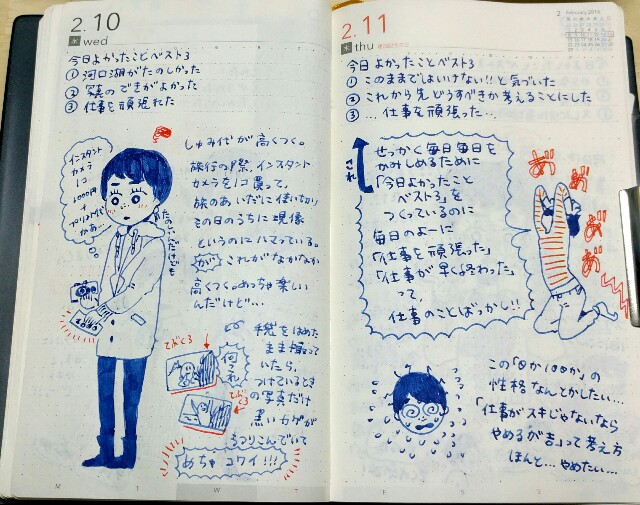 2.10
水 wed
今日よかったことベスト3
① 河口湖がたのしかった
② 写真のできがよかった
③ 仕事を頑張れた
インスタント
カメラ
1コ
1000円
+
プリント代
かぁ…
しゅみ代が高くつく。
旅行の際、インスタント
カメラを1コ買って、
旅のあいだに使いきり
その日のうちに現像
というのにハマっている。
が これがなかなか
高くつく。めっちゃ楽しい
んだけど…
手袋をはめた
まま撮って
いたら、
つけているとき
の写真だけ
黒いカゲが
うつりこんでいて
めちゃコワイ!!!
てぶくろ
何コレ
てぶくろ
M T W T
2.11
木 thu 建国記念の日
2 February 2016
今日よかったことベスト3
① このままではいけない!!と気づいた
② これから先どうすべきか考えることにした
③ … 仕事を頑張った…
これ
せっかく毎日毎日を
かみしめるために
「今日よかったこと
ベスト3」を
つくっているのに
毎日のよーに
「仕事を頑張った」
「仕事が早く終わった」
って、
仕事のことばっかし!!
あ゛
あ゛
あ゛
あ゛
この「0か100か」の
性格なんとかしたい…
「仕事がスキじゃないなら
やめるが吉」って考え方
ほんと…やめたい…
F S S